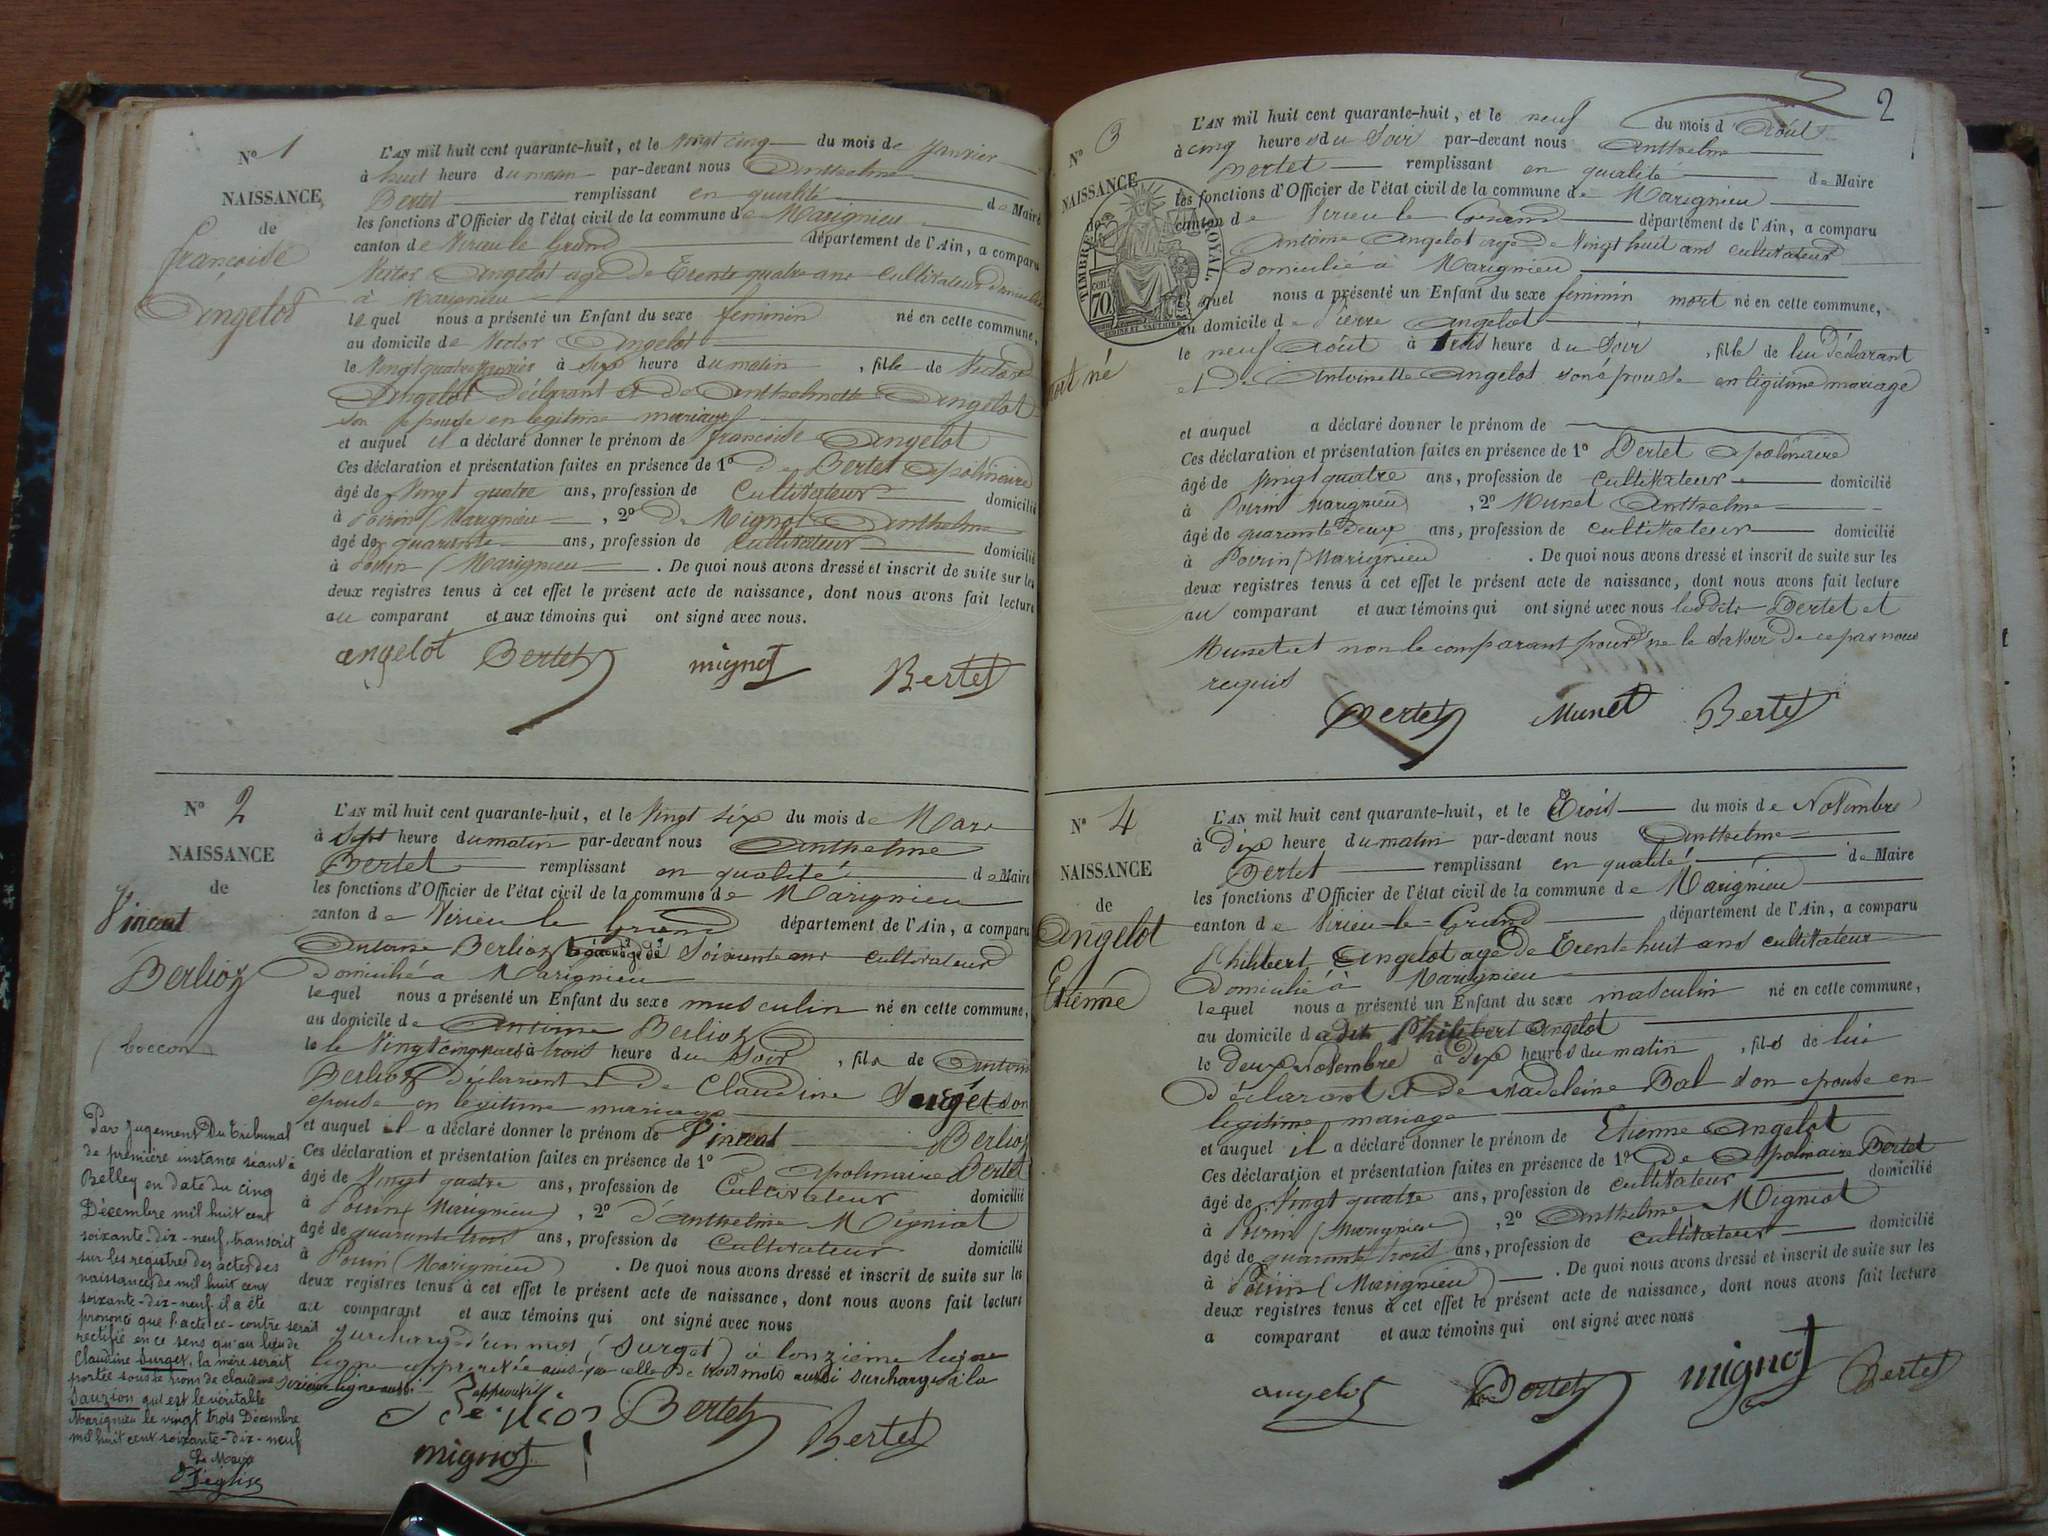 N° 1
NAISSANCE
de
françoise
Angelot
L'AN mil huit cent quarante-huit, et le vingt cinq du mois de janvier
à huit heure du matin par-devant nous Anthelme
Bertet remplissant en qualité de Maire
les fonctions d'Officier de l'état civil de la commune de Marignieu
canton de Virieu le Grand département de l'Ain, a comparu
Victor Angelot agé de Trente quatre ans cultivateur domicilié
à Marignieu
lequel nous a présenté un Enfant du sexe feminin né en cette commune,
au domicile de Victor Angelot
le vingt quatre janvier à six heure du matin, fille de Victor
Angelot déclarant et de Anthelmette Angelot
son epouse en legitime mariage
et auquel il a déclaré donner le prénom de françoise Angelot
Ces déclaration et présentation faites en présence de 1° de Bertet apolinaire
âgé de vingt quatre ans, profession de cultivateur domicilié
à Poirin (Marignieu , 2° de Mignot Anthelme
âgé de quarante ans, profession de cultivateur domicilié
à Poirin (Marignieu . De quoi nous avons dressé et inscrit de suite sur les
deux registres tenus à cet effet le présent acte de naissance, dont nous avons fait lecture
au comparant et aux témoins qui ont signé avec nous.
angelot Bertet mignot Bertet
N° 2
NAISSANCE
de
Vincent
Berlioz
(boccon)
L'AN mil huit cent quarante-huit, et le vingt six du mois de Mars
à sept heure du matin par-devant nous Anthelme
Bertet remplissant en qualité de Maire
les fonctions d'Officier de l'état civil de la commune de Marignieu
canton de Virieu le Grand département de l'Ain, a comparu
Antoine Berlioz agé de soixante ans cultivateur
domicilié a Marignieu
lequel nous a présenté un Enfant du sexe musculin né en cette commune,
au domicile de Antoine Berlioz
le le vingt cinq mars à trois heure du soir, fils de Antoine
Berlioz déclarant et de Claudine Surget son
epouse en legitime mariage
et auquel il a déclaré donner le prénom de Vincent Berlioz
Ces déclaration et présentation faites en présence de 1° d apolinaire Bertet
âgé de vingt quatre ans, profession de cultivateur domicilié
à Poirin (Marignieu) , 2° d'anthelme Migniot
âgé de quarante trois ans, profession de cultivateur domicilié
à Poirin (Marignieu) . De quoi nous avons dressé et inscrit de suite sur les
deux registres tenus à cet effet le présent acte de naissance, dont nous avons fait lecture
au comparant et aux témoins qui ont signé avec nous
surcharge d'un mot (surget) à lonzieme ligne
ligne approuvée ainsi que celle de trois mots aussi surchargé à la
sixieme ligne aussi approuvés
Berlioz Bertet Bertet
mignot
Par jugement du Tribunal
de première instance séant à
Belley en date du cinq
Décembre mil huit cent
soixante-dix-neuf, transcrit
sur les registres des actes des
naissances de mil huit cent
soixante-dix-neuf il a été
prononcé que l'acte ci-contre serait
rectifié en ce sens qu'au lieu de
Claudine Surget, la mère serait
portée sous le nom de Claudine
Sauzion qui est le véritable
Marignieu le vingt trois Décembre
mil huit cent soixante-dix-neuf
Le Maire
2
N° 3
NAISSANCE
TIMBRE ROYAL
70
mort né
L'AN mil huit cent quarante-huit, et le neuf du mois d'Août
à cinq heures du soir par-devant nous Anthelme
Bertet remplissant en qualité de Maire
les fonctions d'Officier de l'état civil de la commune de Marignieu
canton de Virieu le Grand département de l'Ain, a comparu
Antoine Angelot agé de vingt huit ans cultivateur
domicilié à Marignieu
lequel nous a présenté un Enfant du sexe feminin mort né en cette commune,
au domicile de Pierre Angelot
le neuf Août à trois heure du soir, fille de lui déclarant
et de Antoinette Angelot son épouse en légitime mariage
et auquel a déclaré donner le prénom de
Ces déclaration et présentation faites en présence de 1° Bertet apolinaire
âgé de vingt quatre ans, profession de cultivateur domicilié
à Poirin Marignieu) , 2° Munet Anthelme
âgé de quarante deux ans, profession de cultivateur domicilié
à Poirin (Marignieu . De quoi nous avons dressé et inscrit de suite sur les
deux registres tenus à cet effet le présent acte de naissance, dont nous avons fait lecture
au comparant et aux témoins qui ont signé avec nous lesdits Bertet et
Munet et non le comparant pour ne le savoir de ce par nous
requis
Bertet Munet Bertet
N° 4
NAISSANCE
de
Angelot
Etienne
L'AN mil huit cent quarante-huit, et le Trois du mois de Novembre
à dix heure du matin par-devant nous Anthelme
Bertet remplissant en qualité de Maire
les fonctions d'Officier de l'état civil de la commune de Marignieu
canton de Virieu le Grand département de l'Ain, a comparu
Philibert Angelot agé de Trente huit ans cultivateur
domicilié à Marignieu
lequel nous a présenté un Enfant du sexe masculin né en cette commune,
au domicile dudit Philibert Angelot
le deux Novembre à dix heures du matin, fils de lui
déclarant et de Madeleine Bal son epouse en
legitime mariage
et auquel il a déclaré donner le prénom de Etienne Angelot
Ces déclaration et présentation faites en présence de 1° de Apolinaire Bertet
âgé de vingt quatre ans, profession de cultivateur domicilié
à Poirin (Marignieu) , 2° Anthelme Migniot
âgé de quarante trois ans, profession de cultivateur domicilié
à Poirin (Marignieu) . De quoi nous avons dressé et inscrit de suite sur les
deux registres tenus à cet effet le présent acte de naissance, dont nous avons fait lecture
a comparant et aux témoins qui ont signé avec nous
angelot Bertet mignot Bertet